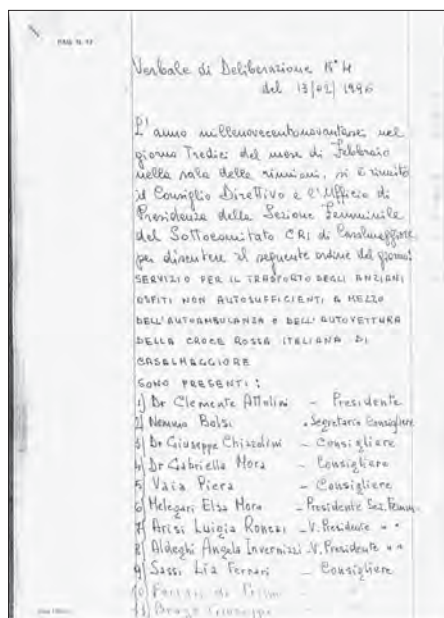 PAG. N. 17
Verbale di Deliberazione N° 4
del 13/02/1996
L'anno millenovecentonovantasei nel
giorno Tredici del mese di Febbraio
nella sala delle riunioni, si è riunito
il Consiglio Direttivo e l'Ufficio di
Presidenza della Sezione Femminile
del Sottocomitato CRI di Casalmaggiore
per discutere il seguente ordine del giorno:
SERVIZIO PER IL TRASPORTO DEGLI ANZIANI
OSPITI NON AUTOSUFFICIENTI A MEZZO
DELL'AUTOAMBULANZA e DELL'AUTOVETTURA
DELLA CROCE ROSSA ITALIANA DI
CASALMAGGIORE
SONO PRESENTI:
1) Dr Clemente Attolini - Presidente
2) Nemma Bolsi - Segretario Consigliere
3) Dr Giuseppe Chiazolini - Consigliere
4) Dr Gabriella Mora - Consigliere
5) Vaia Piera - Consigliere
6) Melegari Elsa Mora - Presidente Sez. Femm.
7) Arisi Luigia Roncai - V. Presidente " "
8) Aldeghi Angela Invernizzi - V. Presidente " "
9) Sassi Lia Ferrari - Consigliere
10)
11) Giuseppe